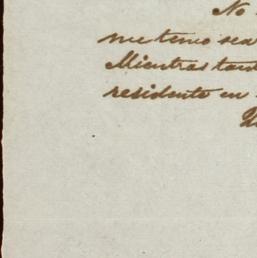 No
me temo sea
Mientras tant
residente en